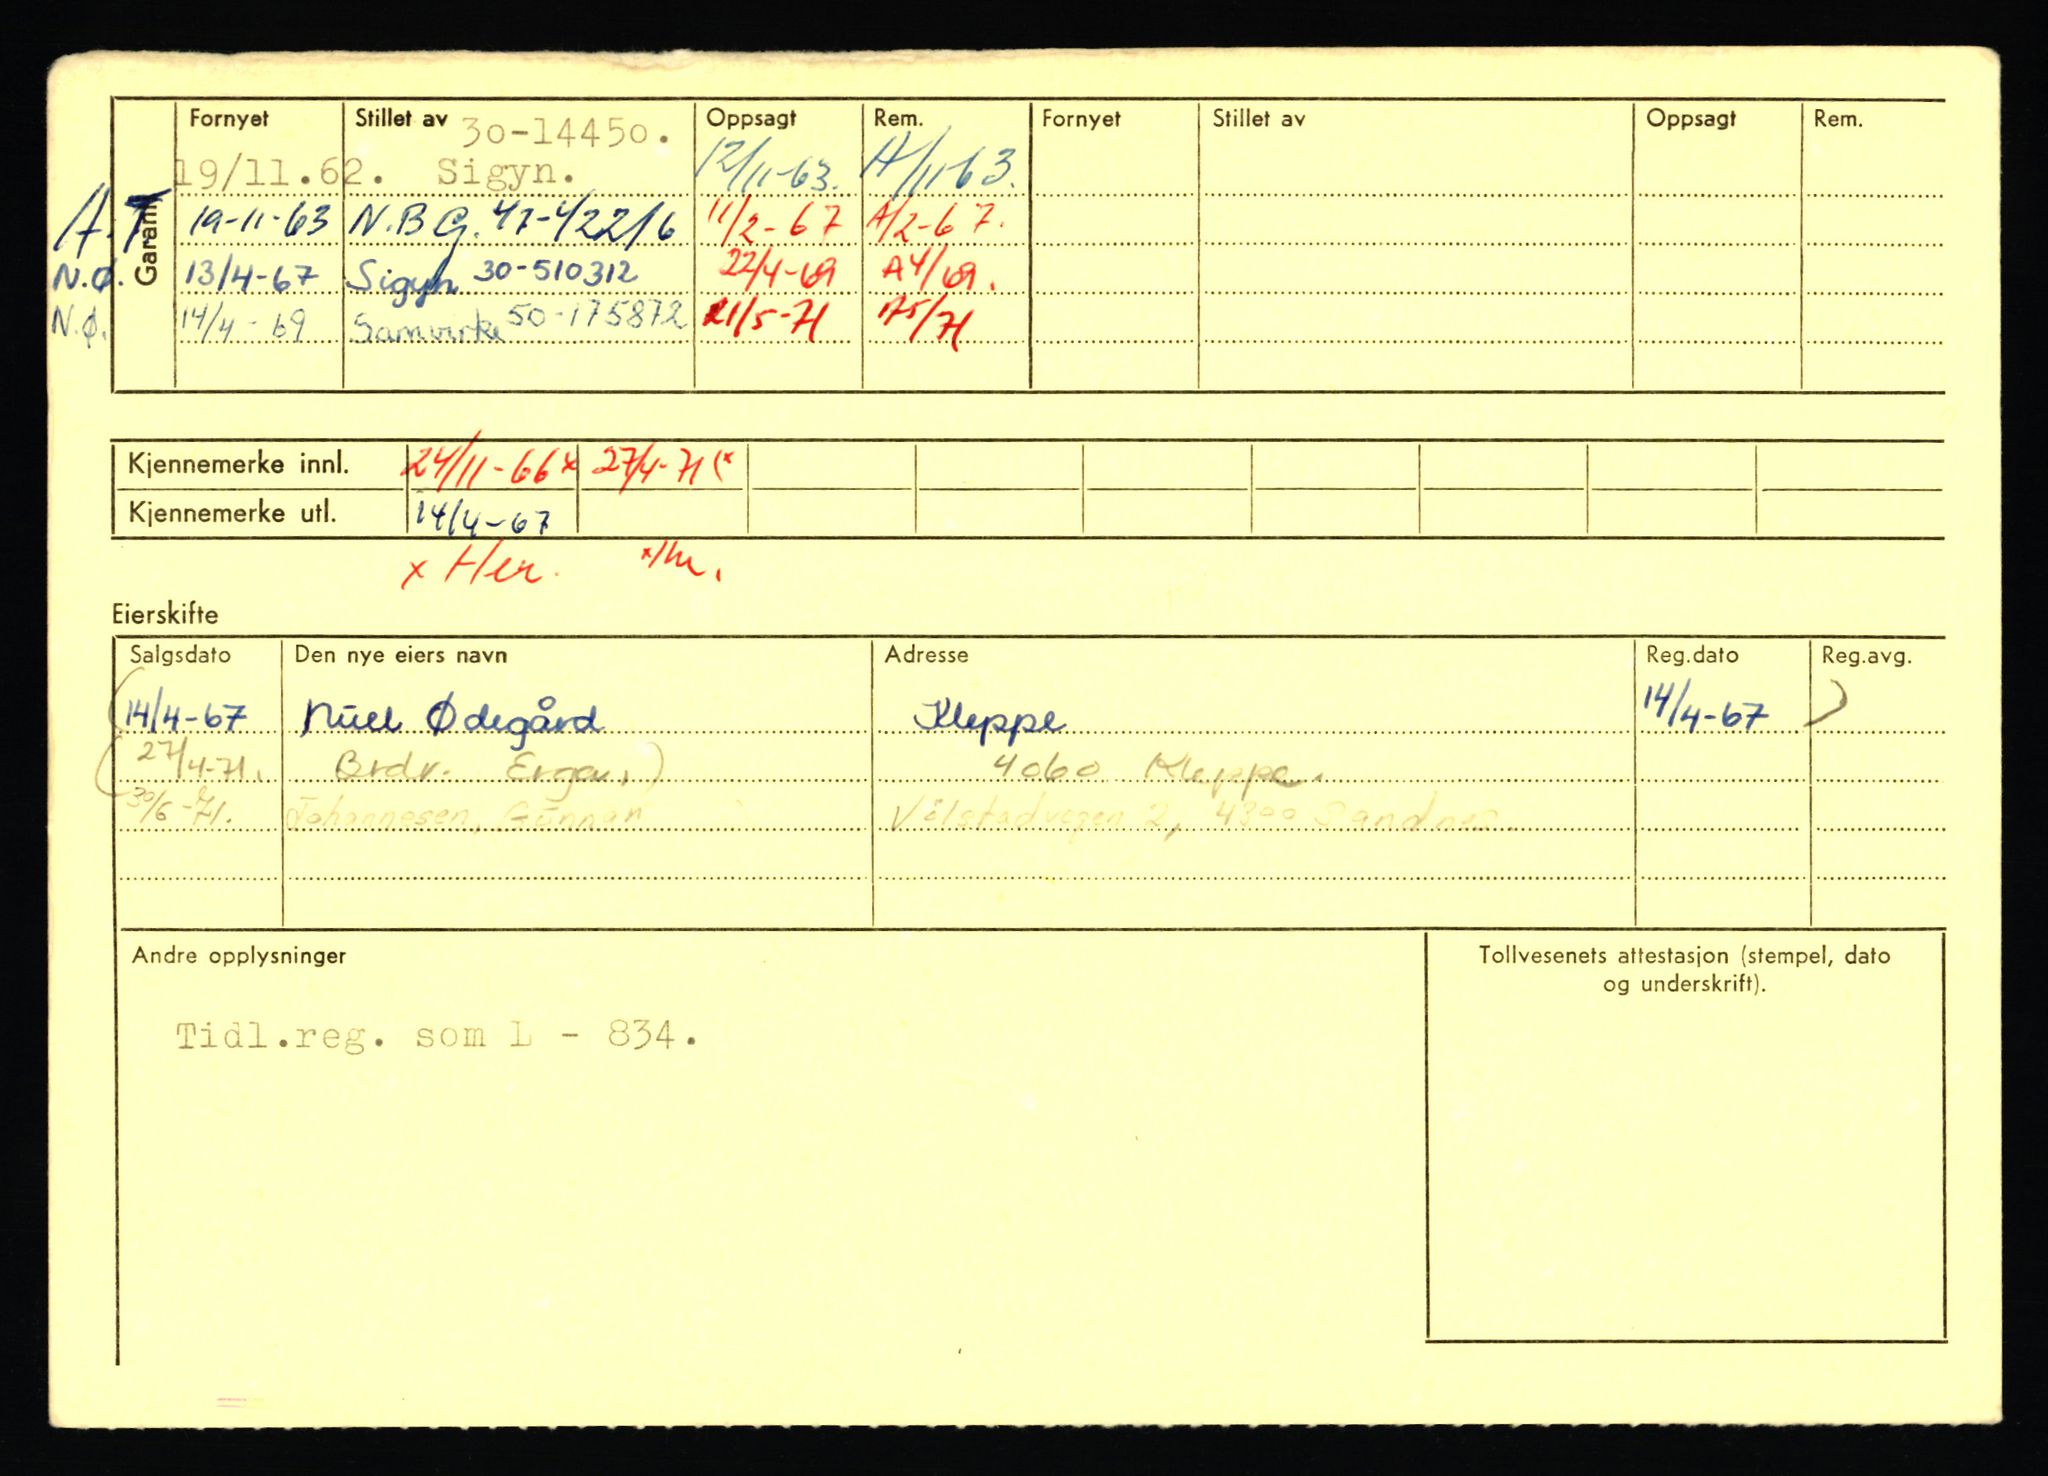 Fornyet Stillet av 30-14450. Oppsagt Rem. Fornyet Stillet av Oppsagt Rem.
19/11.62. Sigyn. 12/11-63. A/11-63.
Garanti
A.T 19-11-63 N.B.G. 47-422/6 11/2-67 A/2-67.
N.Ø. 13/4-67 Sigyn 30-510312 22/4-69 A4/69.
N.Ø. 14/4-69 Samvirke 50-175872 21/5-71 A5/71
Kjennemerke innl. 24/11-66x 27/4-71(x
Kjennemerke utl. 14/4-67
x Her.
Eierskifte
Salgsdato Den nye eiers navn Adresse Reg.dato Reg.avg.
(14/4-67 Ødegård Kleppe 14/4-67 )
(27/4-71. Brdr. Erga.) 4060 Kleppe.
30/6-71. Johannesen, Gunnar 2, 4300 Sandnes.
Andre opplysninger
Tollvesenets attestasjon (stempel, dato
og underskrift).
Tidl.reg. som L - 834.